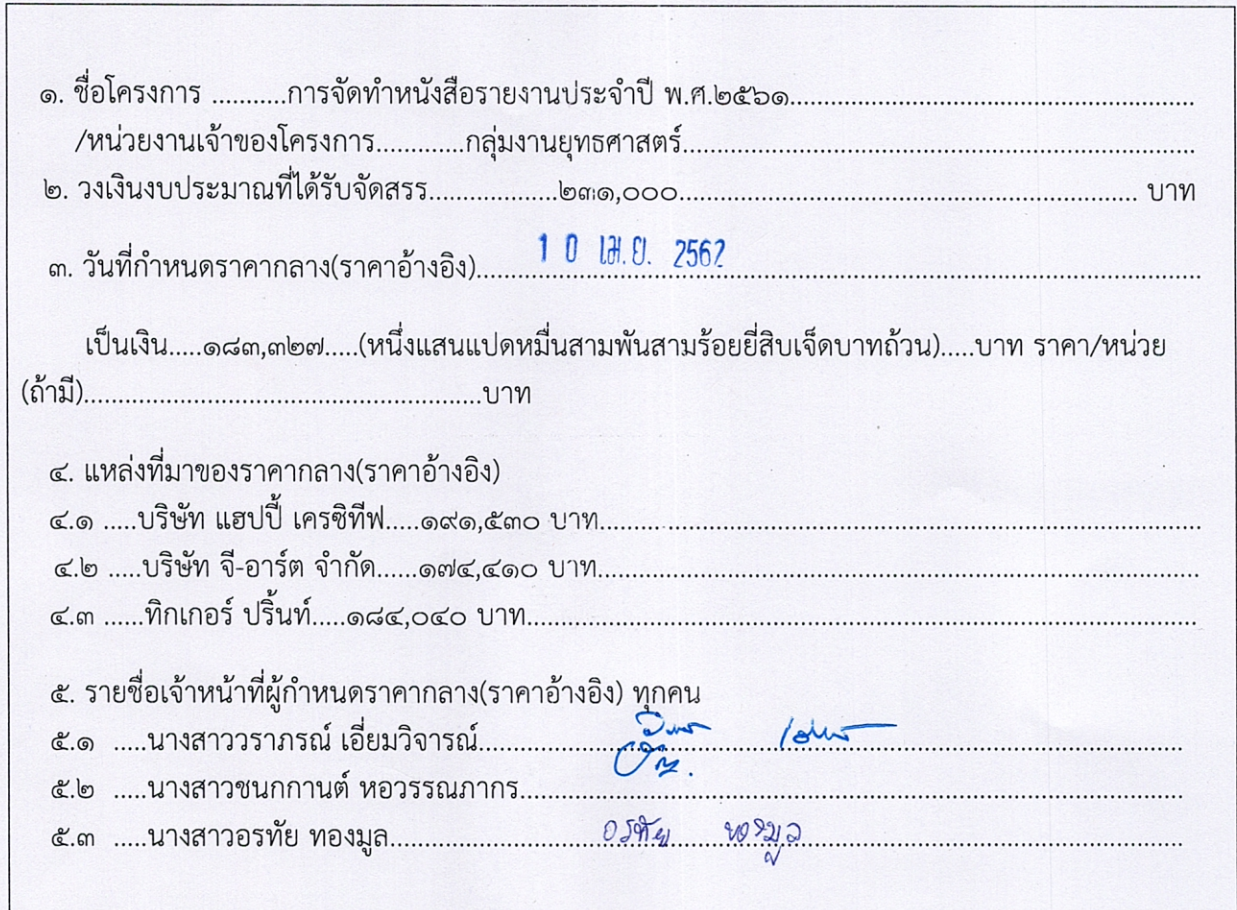 ๑. ชื่อโครงการ ...........การจัดทำหนังสือรายงานประจำปี พ.ศ.๒๕๖๑...........................................................
/หน่วยงานเจ้าของโครงการ.............กลุ่มงานยุทธศาสตร์...........................................................................
๒. วงเงินงบประมาณที่ได้รับจัดสรร...................๒๓๑,๐๐๐................................................................... บาท
๓. วันที่กำหนดราคากลาง(ราคาอ้างอิง)....... 1 0 เม.ย. 2562 ......................................................................
เป็นเงิน.....๑๘๓,๓๒๗.....(หนึ่งแสนแปดหมื่นสามพันสามร้อยยี่สิบเจ็ดบาทถ้วน).....บาท ราคา/หน่วย
(ถ้ามี)..........................................................บาท
๔. แหล่งที่มาของราคากลาง(ราคาอ้างอิง)
๔.๑ .....บริษัท แฮปปี้ เครซิทีฟ.....๑๙๑,๕๓๐ บาท........................................................................................
๔.๒ .....บริษัท จี-อาร์ต จำกัด......๑๗๔,๔๑๐ บาท........................................................................................
๔.๓ ......ทิกเกอร์ ปริ้นท์.....๑๘๔,๐๔๐ บาท..................................................................................................
๕. รายชื่อเจ้าหน้าที่ผู้กำหนดราคากลาง(ราคาอ้างอิง) ทุกคน
๕.๑ .....นางสาววราภรณ์ เอี่ยมวิจารณ์.......................................................................................................
๕.๒ .....นางสาวชนกกานต์ หอวรรณภากร.................................................................................................
๕.๓ .....นางสาวอรทัย ทองมูล................................อรทัย ทองมูล.......................................................